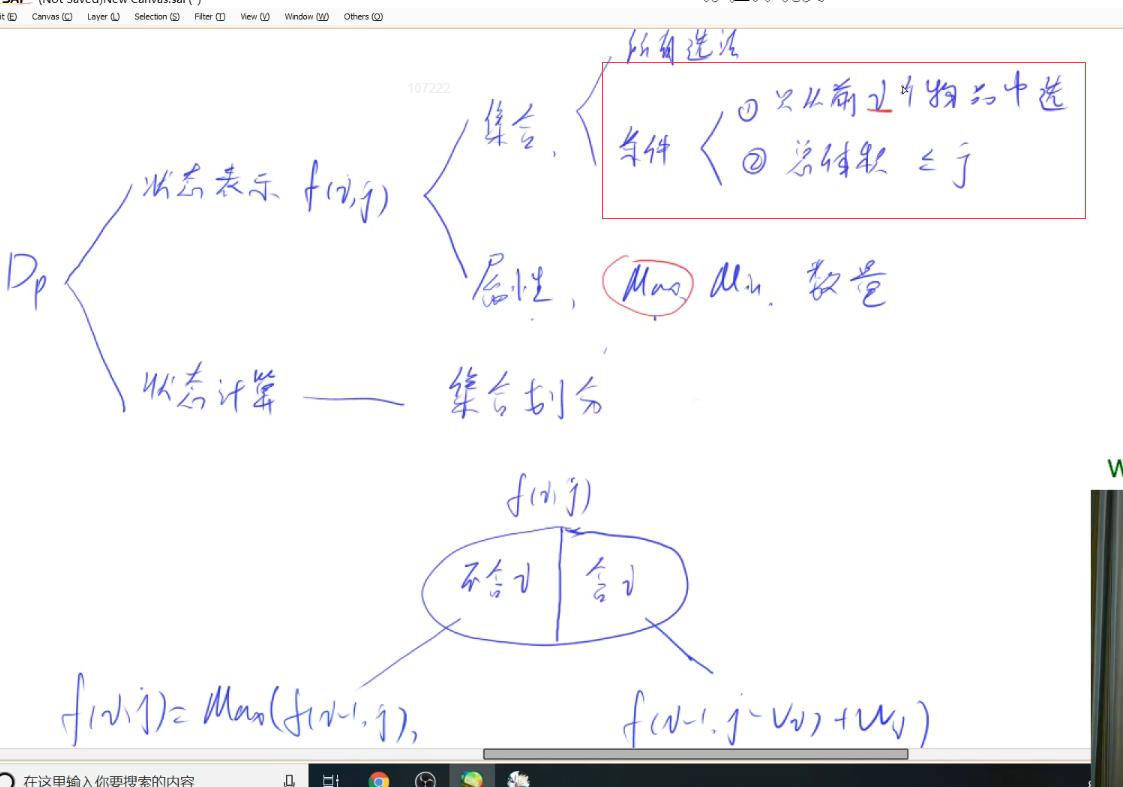 (Not Saved)New Canvas.sai (*)
it (E) Canvas (C) Layer (L) Selection (S) Filter (T) View (V) Window (W) Others (O)
所有选法
107222
集合,
条件
① 只从前i个物品中选
② 总体积 ≤ j
状态表示 f(i,j)
Dp
属性, Max Min. 数量
状态计算 集合划分
W
f(i,j)
不含i 含i
f(i,j)= Max(f(i-1,j), f(i-1,j-Vi)+Wi)
在这里输入你要搜索的内容